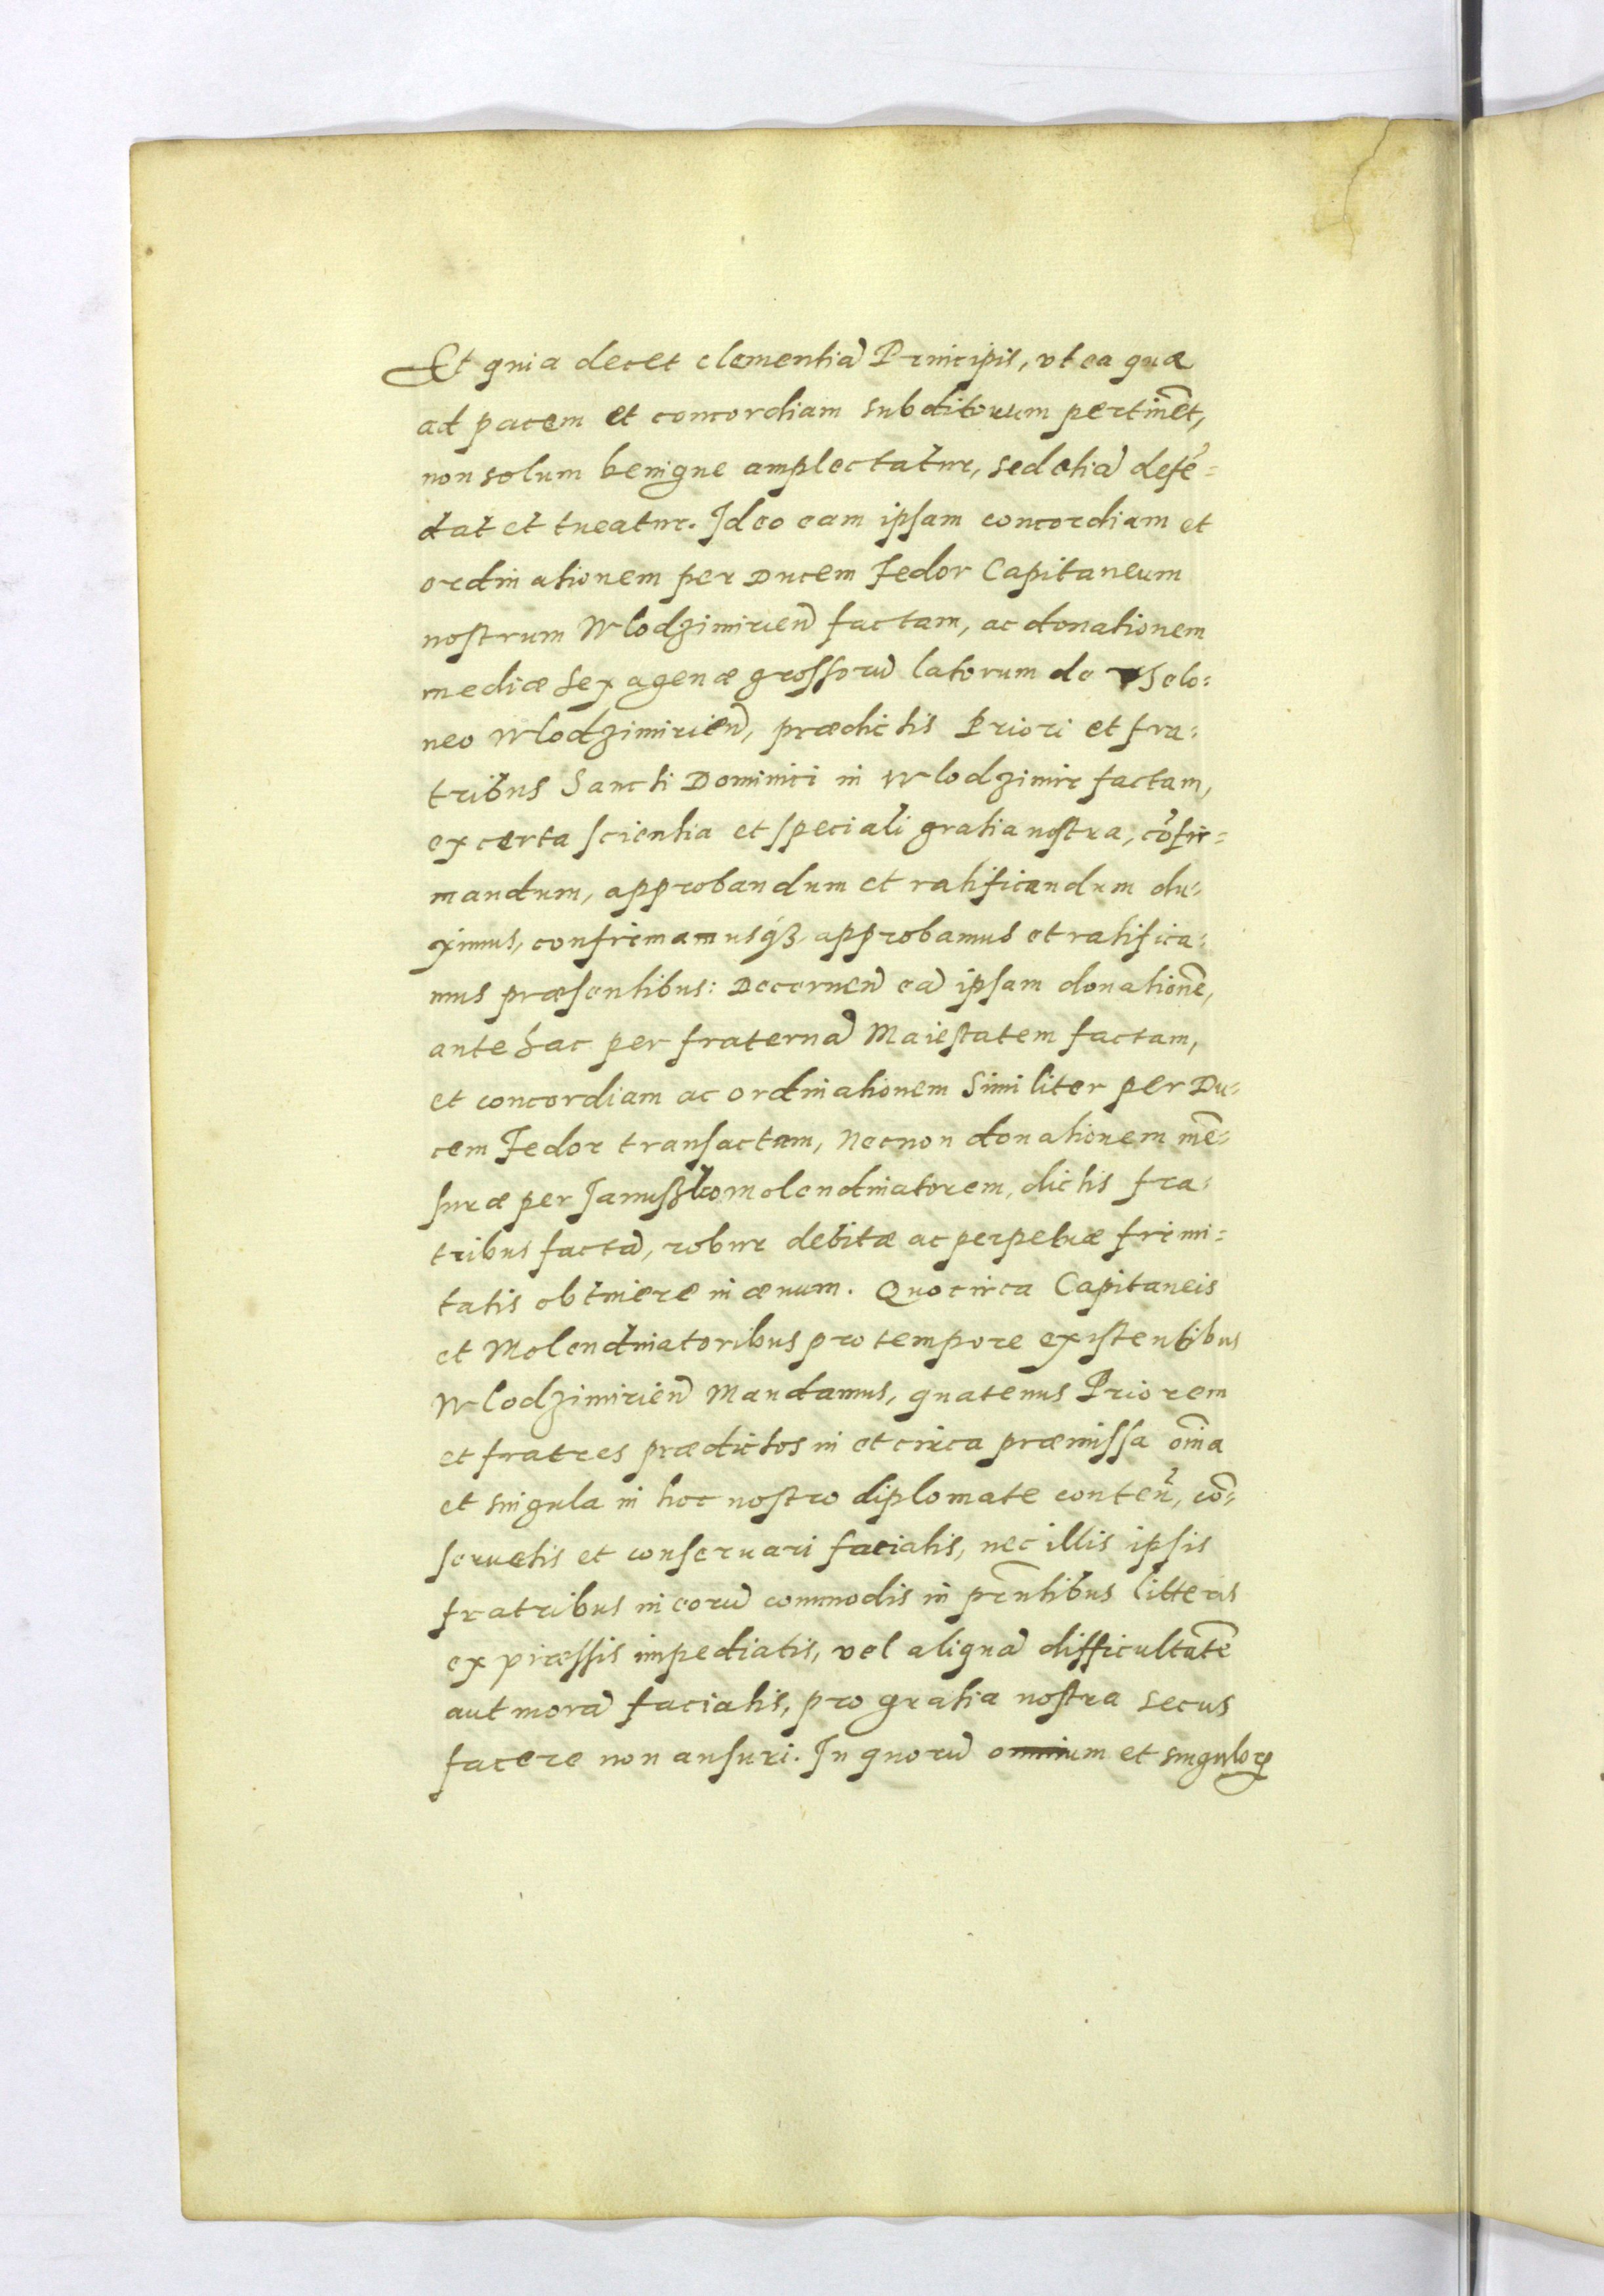 Et quia decet clementiã Principis, vt ea quæ
ad pacem et concordiam subditorum pertinẽt,
non solum benigne amplectatur, sed etiã defẽ=
dat et tueatur. Ideo eam ipsam concordiam et
ordinationem per Ducem Fedor Capitaneum
nostrum Wlodzimirieñ factam, ac donationem
mediæ sexagenæ grossorũ latorum de Telo=
neo Wlodzimirieñ, prædictis Priori et fra=
tribus Sancti Dominici in Wlodzimir factam,
ex certa scientia et speciali gratia nostra, cõfir=
mandum, approbandum et ratificandum du=
ximus, confirmamusqꝫ approbamus et ratifica=
mus præsentibus: Decerneñ eã ipsam donationẽ,
ante hac per fraternã Maiestatem factam,
et concordiam ac ordinationem similiter per Du=
cem Fedor transactam, Necnon donationem mẽ=
suræ per Januszko molendinatorem, dictis fra=
tribus factã, robur debitæ ac perpetuæ firmi=
tatis obtinere in æuum. Quocirca Capitaneis
et Molendinatoribus pro tempore existentibus
Wlodzimirieñ Mandamus, quatenus Priorem
et fratres prædictos in et circa præmissa om̃ia
et singula in hoc nostro diplomate conteñ, cõ=
seruetis et conseruari faciatis, nec illis ipsis
fratribus in eorũ commodis in pr̃ntibus litteris
expræssis impediatis, vel aliquã difficultatẽ
aut morã faciatis, pro gratia nostra secus
facere non ausuri. In quorũ omnium et singuloꝝ